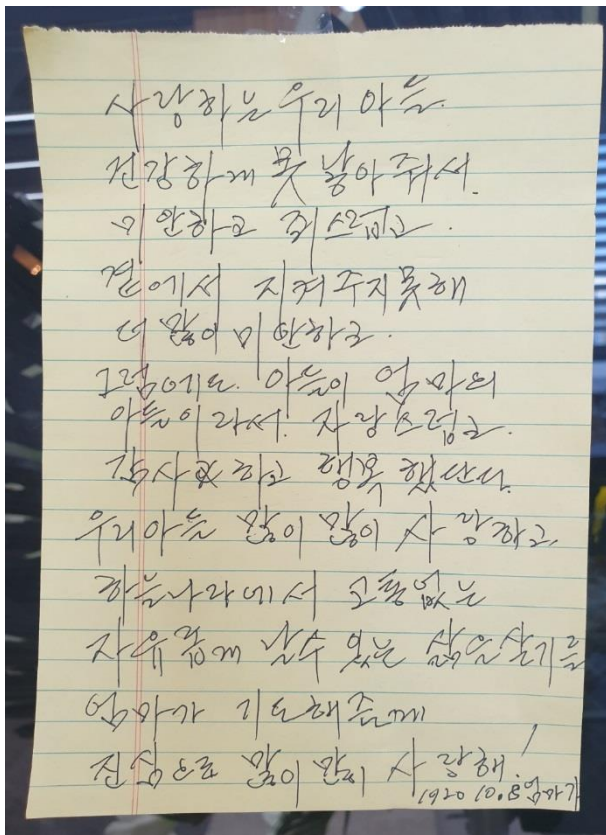 사랑하는 우리 아들.
건강하게 못 낳아줘서.
미안하고 죄스럽고.
곁에서 지켜주지못해
더 많이 미안하고.
그럼에도. 아들이 엄마의
아들이라서. 자랑스럽고.
감사하고 행복 했단다.
우리아들 많이 많이 사랑하고.
하늘나라에서 고통없는
자유롭게 날수 있는 삶을살기를
엄마가 기도해줄게
진심으로 많이 많이 사랑해!
10.8 엄마가